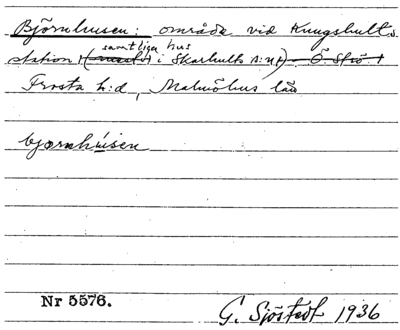 Björnhusen: område vid Kungshults
samtliga hus
station i Skarhults s:n
Frosta h:d, Malmöhus län
bjørnhúsen
Nr 5576.
G. Sjöstedt 1936